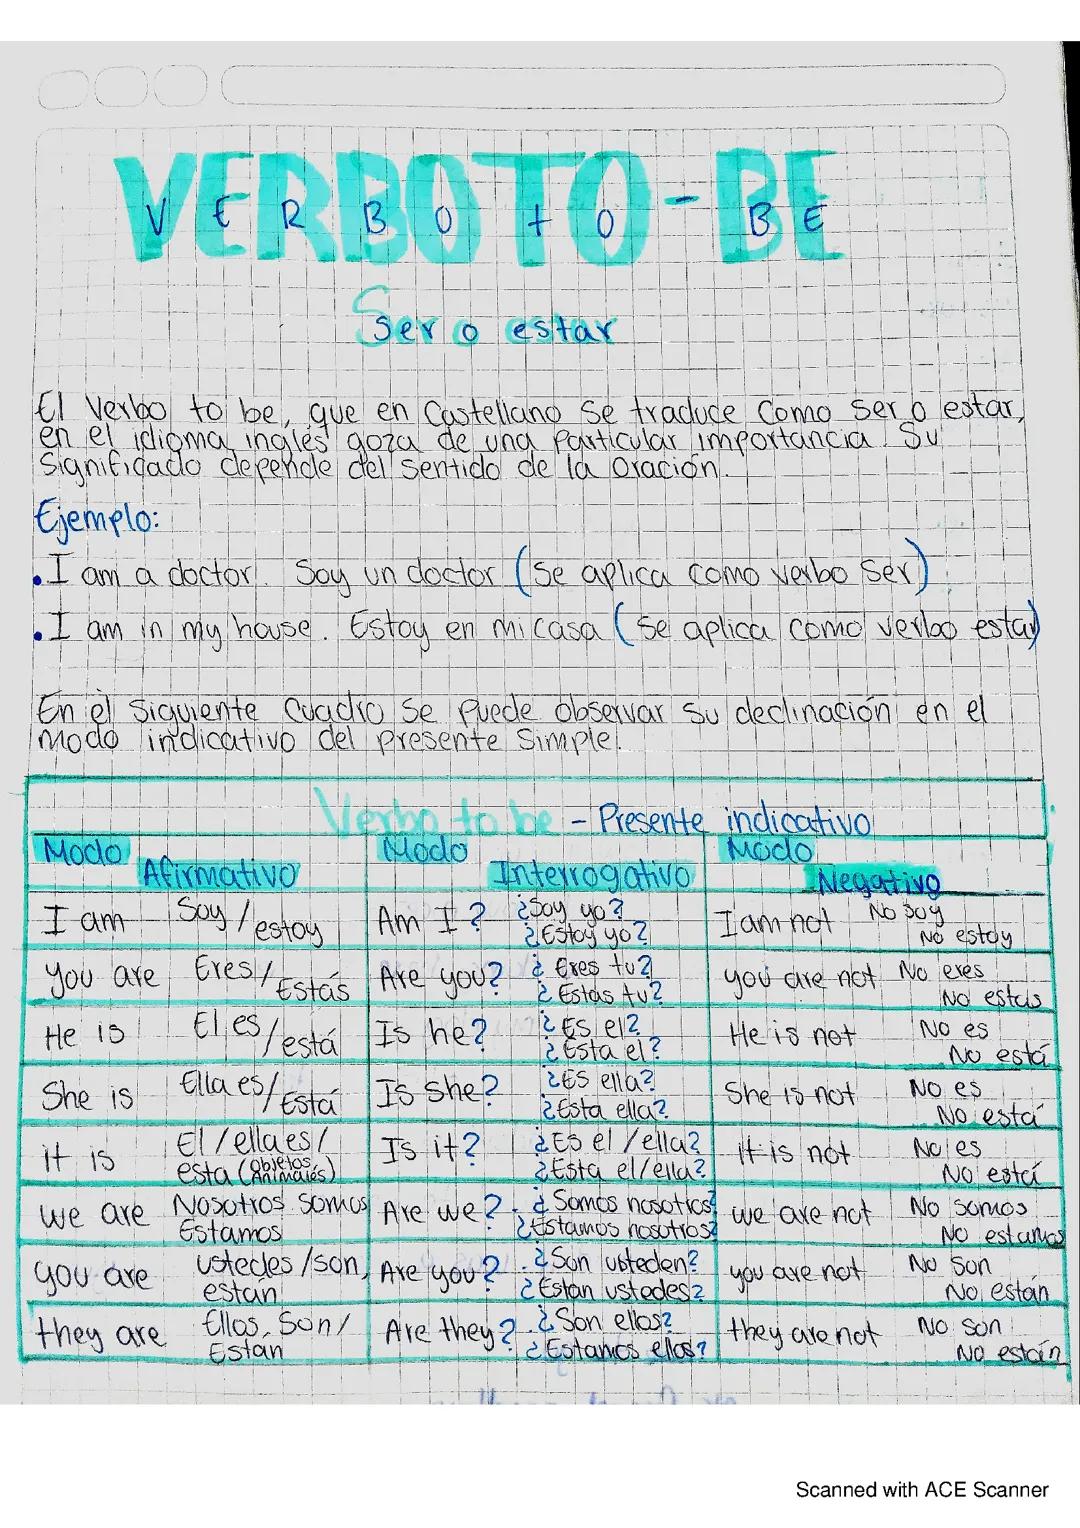 VERBO TO-BE
VERBO to BE
Ser o estar
El Verbo to be, que en Castellano se traduce como ser o estar,
en el idioma inglés goza de una particular importancia. Su
significado depende del sentido de la oración.
Ejemplo:
• I am a doctor. Soy un doctor (se aplica como verbo ser)
• I am in my house. Estoy en mi casa (se aplica como verbo estar)
En el siguiente cuadro se puede observar su declinación en el
modo indicativo del presente simple.
Verbo to be - Presente indicativo
Modo Afirmativo Modo Interrogativo Modo Negativo
I am Soy / estoy Am I? ¿Soy yo? ¿Estoy yo? I am not No soy No estoy
you are Eres / Estás Are you? ¿Eres tu? ¿Estas tu? you are not No eres No estas
He is El es / está Is he? ¿Es el? ¿Esta el? He is not No es No está
She is Ella es / Está Is she? ¿Es ella? ¿Esta ella? She is not No es No está
it is El / ella es / esta (objetos animales) Is it? ¿Es el / ella? ¿Esta el / ella? it is not No es No está
we are Nosotros somos Estamos Are we? ¿Somos nosotros? ¿Estamos nosotros? we are not No somos No estamos
you are ustedes / son, están Are you? ¿Son ubteden? ¿Estan ustedes? you are not No son No están
they are Ellos, Son / Estan Are they? ¿Son ellos? ¿Estamos ellos? they are not No son No están
Scanned with ACE Scanner